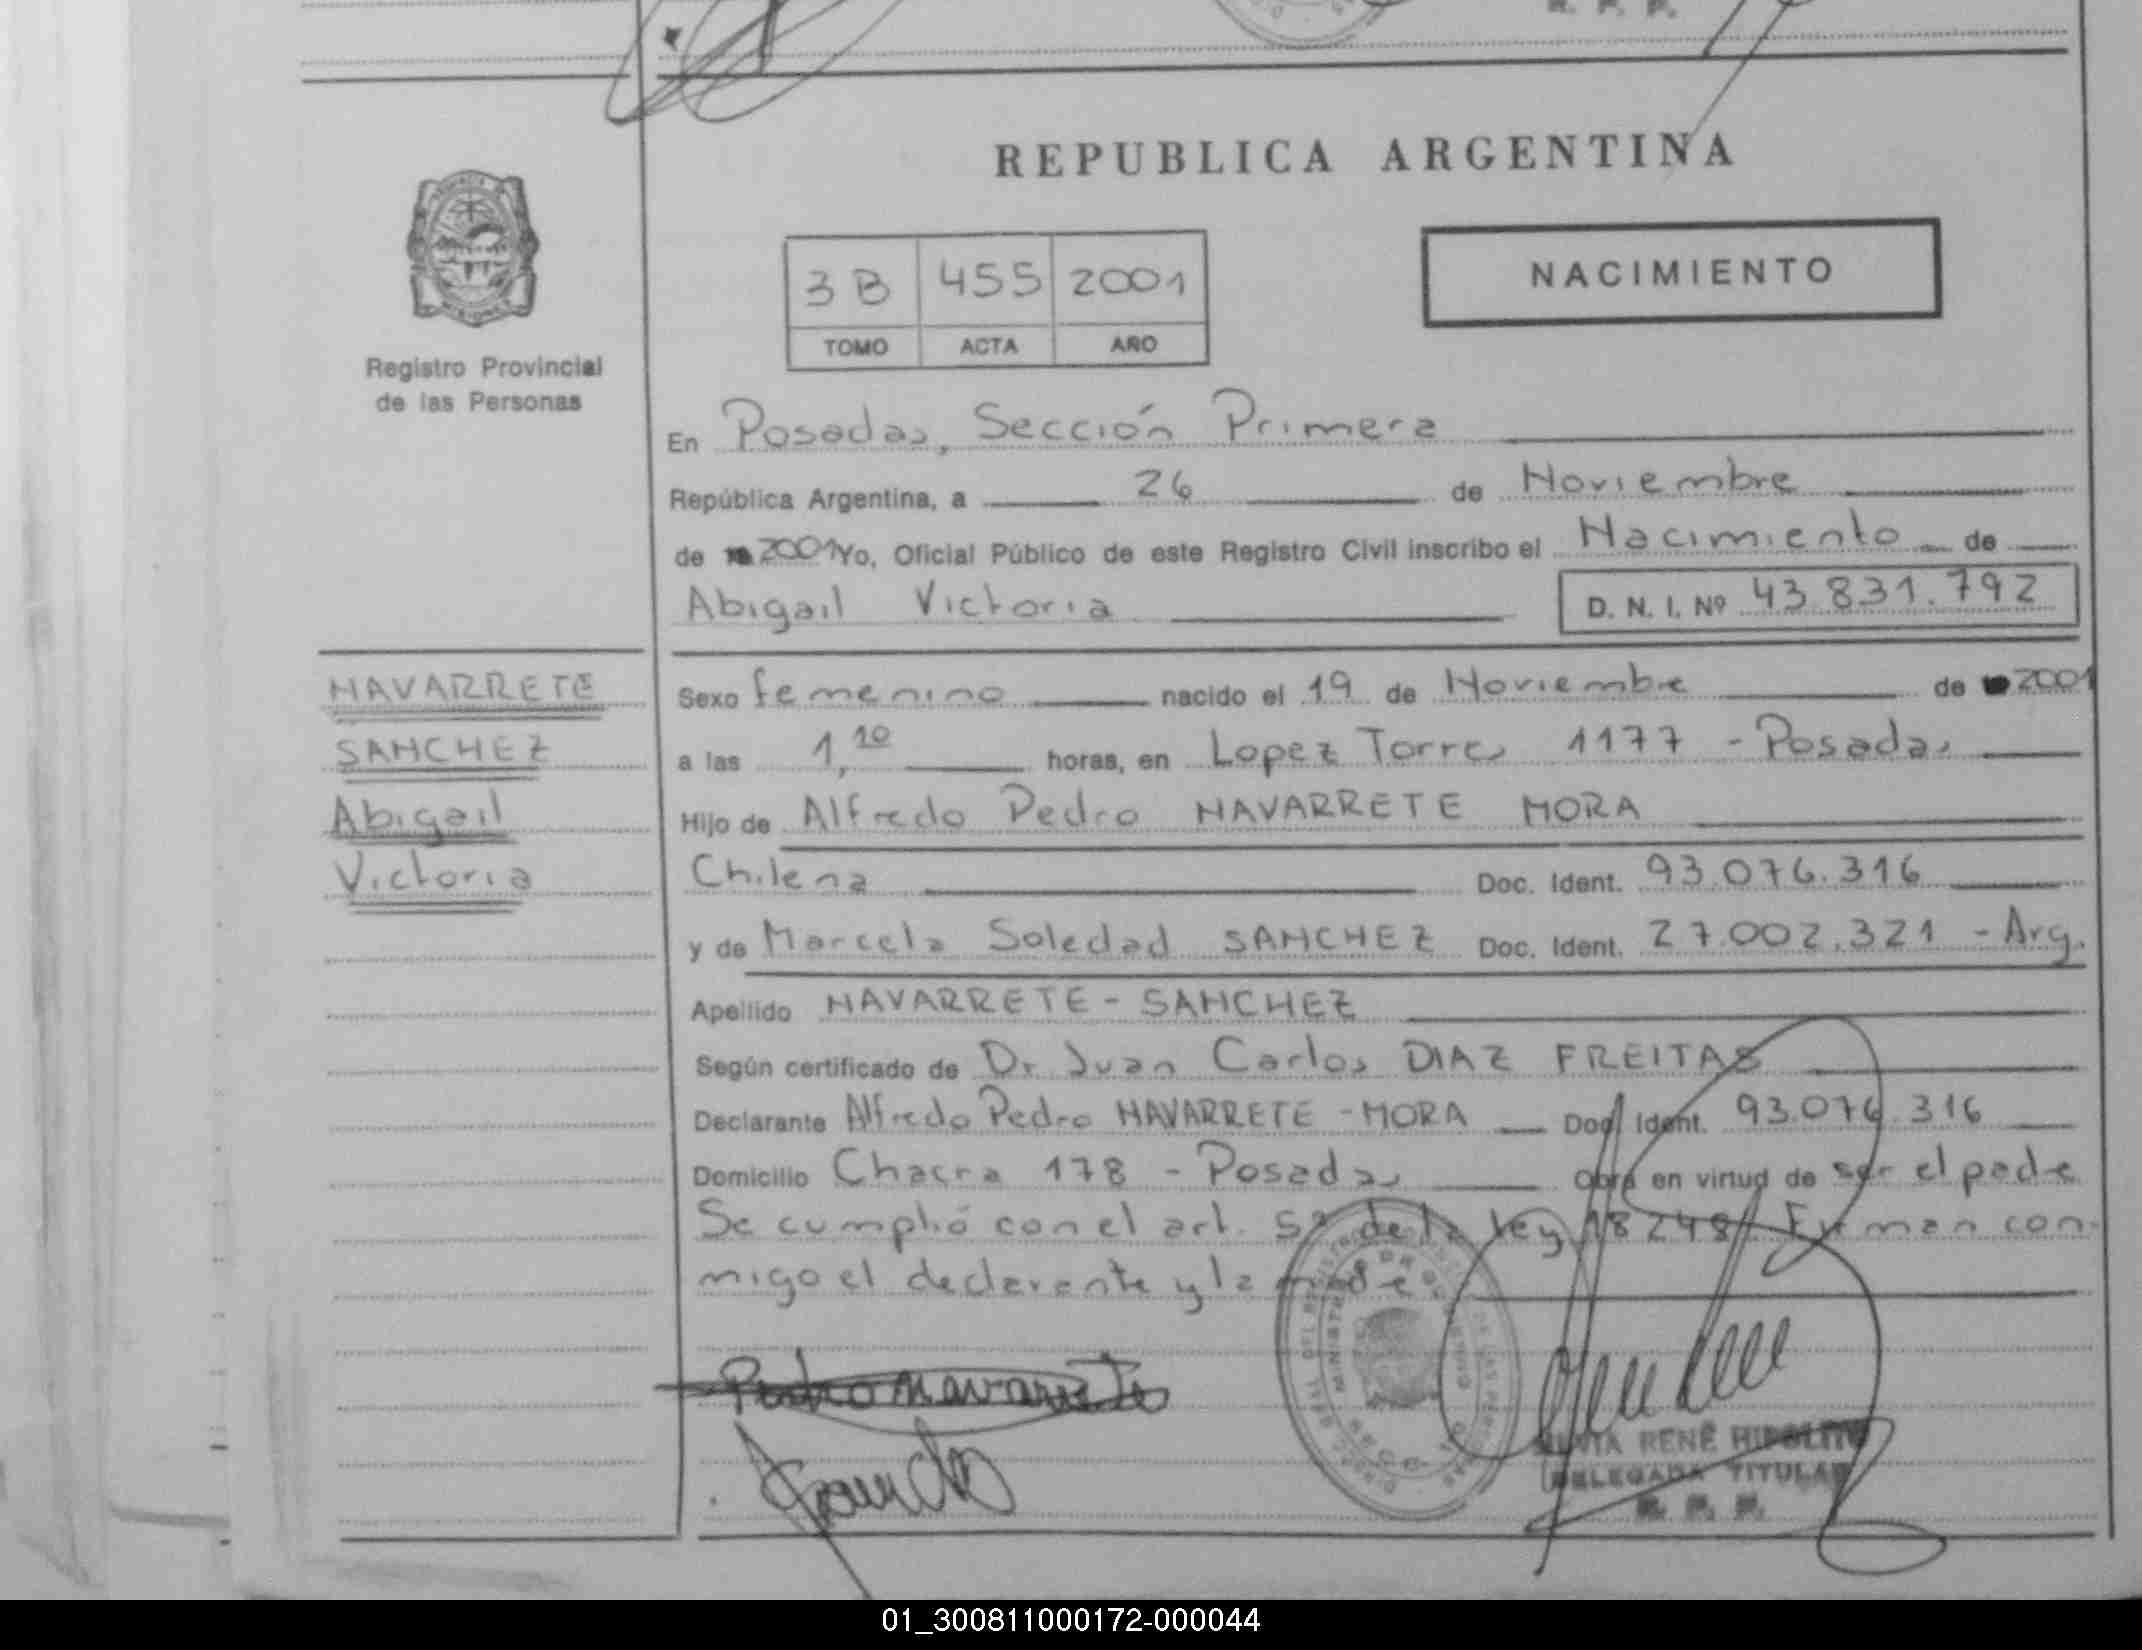 R. P. P.
REPUBLICA ARGENTINA
Registro Provincial
de las Personas
3B 455 2001
TOMO ACTA AÑO
NACIMIENTO
En Posadas, Sección Primera
República Argentina, a 26 de Noviembre
de 2001 Yo, Oficial Público de este Registro Civil inscribo el Nacimiento de
Abigail Victoria D. N. I. Nº 43.831.792
NAVARRETE
SANCHEZ
Abigail
Victoria
Sexo femenino nacido el 19 de Noviembre de 2001
a las 1,10 horas, en Lopez Torres 1177 - Posadas
Hijo de Alfredo Pedro NAVARRETE MORA
Chilena Doc. Ident. 93.076.316
y de Marcela Soledad SANCHEZ Doc. Ident. 27.002.321 - Arg.
Apellido NAVARRETE - SANCHEZ
Según certificado de Dr Juan Carlos DIAZ FREITAS
Declarante Alfredo Pedro NAVARRETE - MORA Doc. Ident. 93.076.316
Domicilio Chacra 178 - Posadas Obra en virtud de ser el padre
Se cumplió con el art. 5º de la ley 18248. Firman con-
migo el declarante y la madre
Pedro Navarrete
SILVIA RENÉ HIPOLITO
DELEGADA TITULAR
R. P. P.
01_300811000172-000044